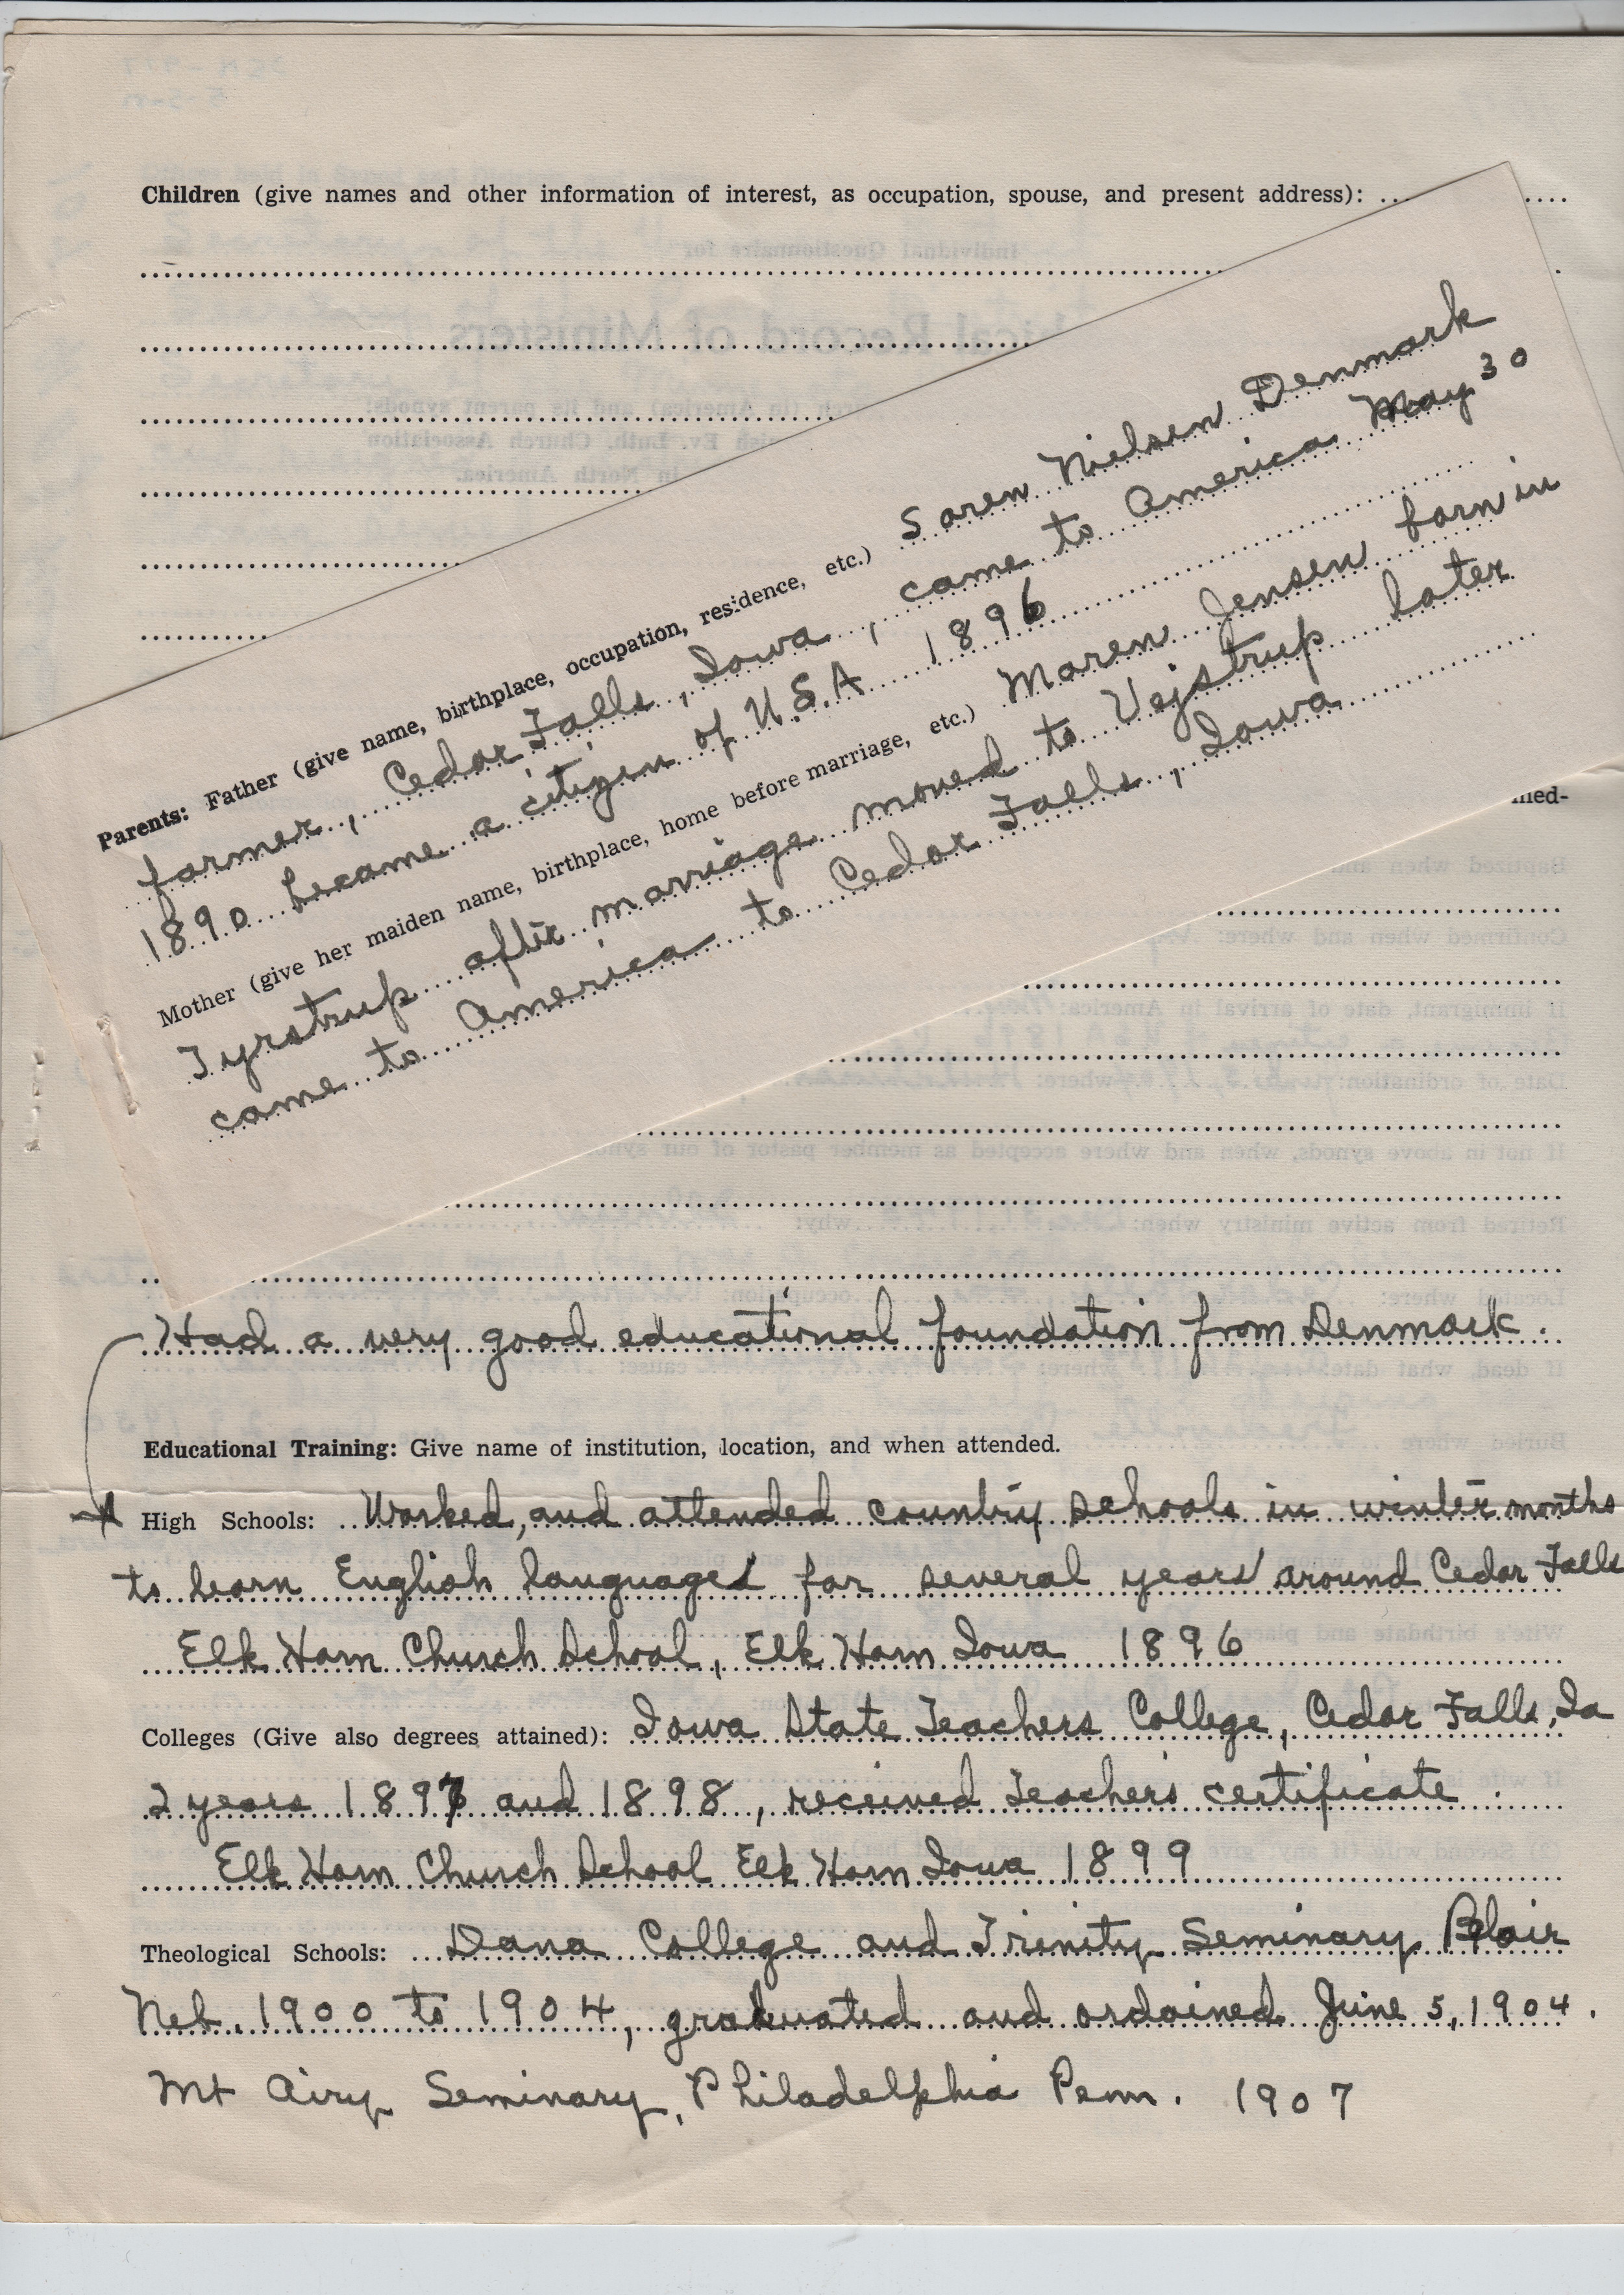 Children (give names and other information of interest, as occupation, spouse, and present address):
Parents: Father (give name, birthplace, occupation, residence, etc.) Soren Nielsen Denmark
farmer, Cedar Falls, Iowa, came to America May 30
1890 became a citizen of U.S.A 1896
Mother (give her maiden name, birthplace, home before marriage, etc.) Maren Jensen born in
Tyrstrup after marriage moved to Vejstrup later
came to America to Cedar Falls, Iowa
Had a very good educational foundation from Denmark.
Educational Training: Give name of institution, location, and when attended.
High Schools: Worked, and attended country schools in winter months
to learn English language for several years around Cedar Falls
Elk Horn Church School, Elk Horn Iowa 1896
Colleges (Give also degrees attained): Iowa State Teachers College, Cedar Falls, Ia
2 years 1897 and 1898, received Teachers certificate.
Elk Horn Church School Elk Horn Iowa 1899
Theological Schools: Dana College and Trinity Seminary Blair
Neb. 1900 to 1904, graduated and ordained June 5, 1904.
Mt Airy Seminary, Philadelphia Penn. 1907